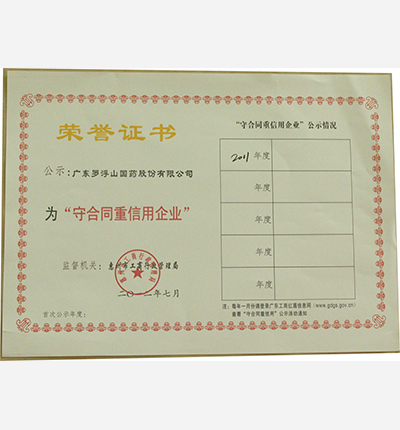 荣誉证书
公示：广东罗浮山国药股份有限公司
为“守合同重信用企业”
监督机关：惠州市工商行政管理局
二〇一二年七月
首次公示年度：
“守合同重信用企业”公示情况
2011 年度
年度
年度
年度
年度
注：每年一月份请登录广东工商红盾信息网（www.gdgs.gov.cn）
查看“守合同重信用”公示活动通知